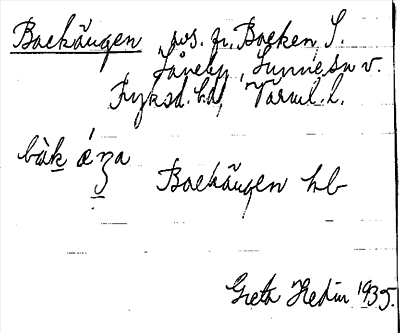 Backängen, avs. fr. Backen, S.
Såneby, Sunnemo v.
Fryksd. hd, Värml. l.
bàk ǽŋa
Backängen hb
Greta Hedin 1935.